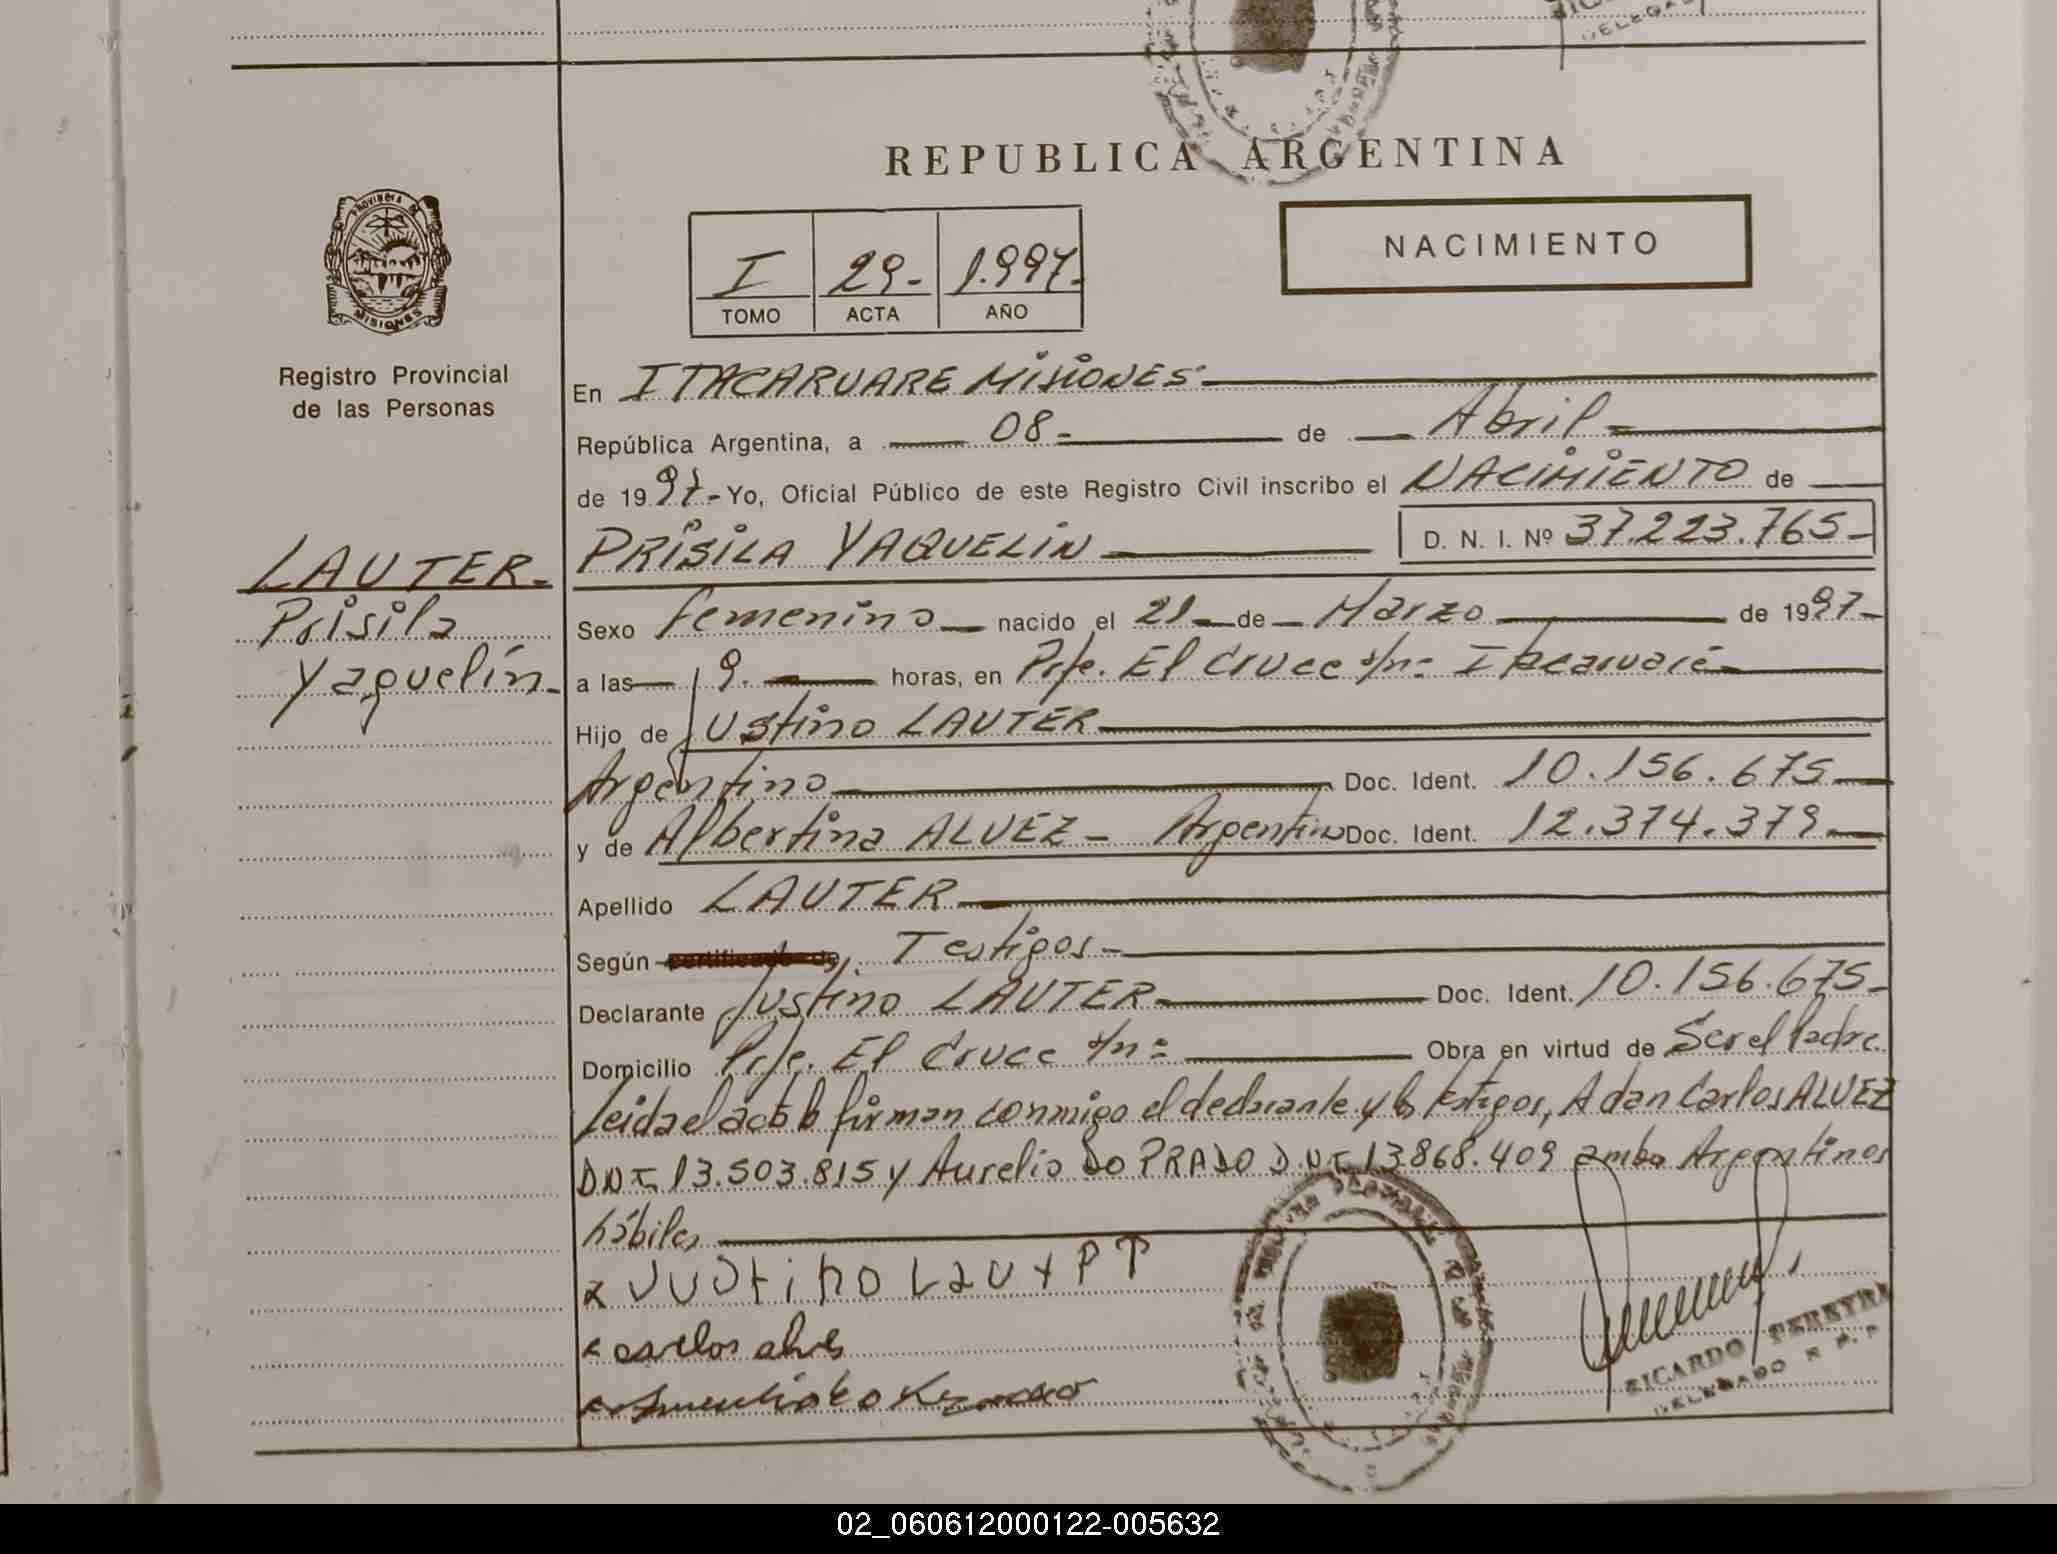 REPUBLICA ARGENTINA
PROVINCIA DE
MISIONES
Registro Provincial
de las Personas
I 29- 1.997-
TOMO ACTA AÑO
NACIMIENTO
LAUTER-
Prisila
Yaquelín-
En ITACARUARE MISIONES-
República Argentina, a 08- de Abril-
de 1997- Yo, Oficial Público de este Registro Civil inscribo el NACIMIENTO de
PRISILA YAQUELIN D. N. I. Nº 37.223.765-
Sexo femenino nacido el 21 de Marzo de 1997-
a las 9. horas, en Prje. El Cruce s/nº Itacaruaré
Hijo de Justino LAUTER
Argentino Doc. Ident. 10.156.675
y de Albertina ALVEZ- Argentina Doc. Ident. 12.374.379
Apellido LAUTER
Según certificado de Testigos-
Declarante Justino LAUTER Doc. Ident. 10.156.675-
Domicilio Prje. El Cruce s/nº Obra en virtud de Ser el Padre.
Leida el acta lo firman conmigo el declarante y los testigos, Adan Carlos ALVEZ
DNI 13.503.815 y Aurelio Do PRADO D.N.I 13868.409 ambos Argentinos
hábiles
x Justino Lauter
x carlos alves
RICARDO PEREYRA
DELEGADO R. P. P.
02_060612000122-005632